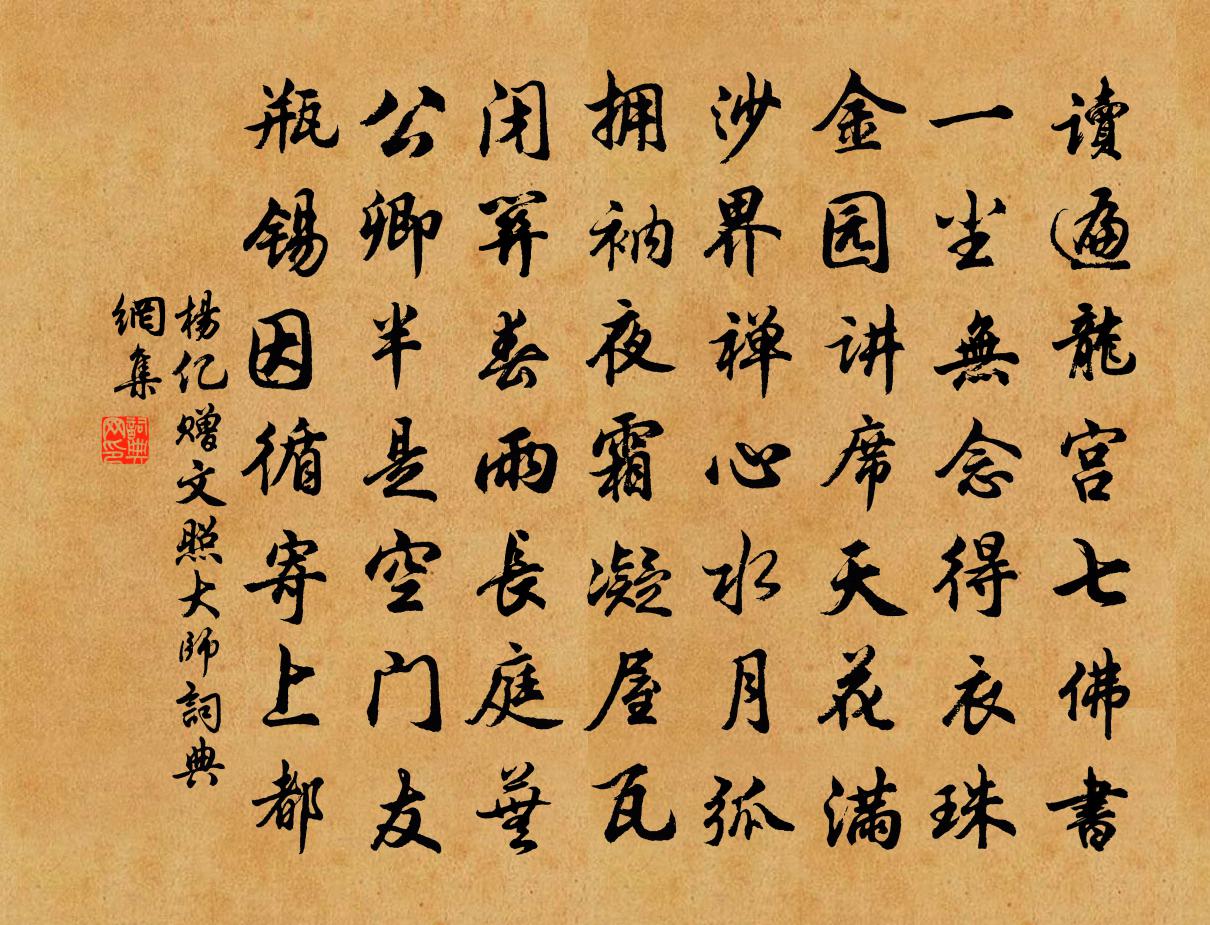 讀遍龍宮七佛書
一尘無念得衣珠
金园讲席天花满
沙界禅心水月孤
拥衲夜霜凝屋瓦
闭关春雨長庭蕪
公卿半是空门友
瓶锡因循寄上都
楊亿赠文照大師詞典
網集
詞典
网印